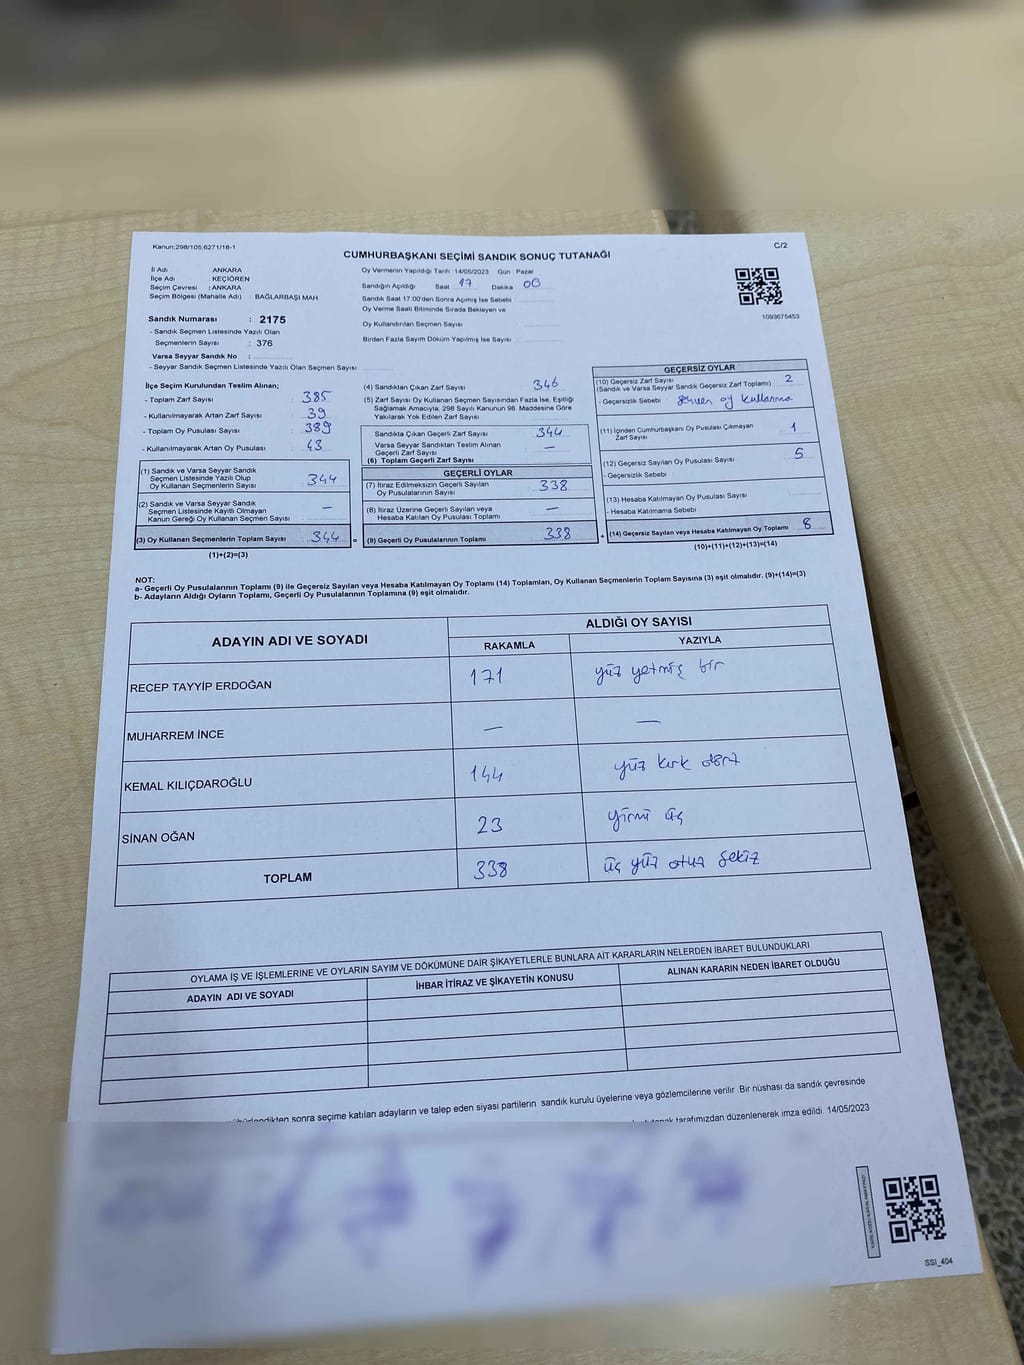 Kanun:298/105,6271/18-1
C/2
CUMHURBAŞKANI SEÇİMİ SANDIK SONUÇ TUTANAĞI
İl Adı : ANKARA
İlçe Adı : KEÇİÖREN
Seçim Çevresi : ANKARA
Seçim Bölgesi (Mahalle Adı) : BAĞLARBAŞI MAH
Sandık Numarası : 2175
- Sandık Seçmen Listesinde Yazılı Olan
Seçmenlerin Sayısı : 376
Varsa Seyyar Sandık No :
- Seyyar Sandık Seçmen Listesinde Yazılı Olan Seçmen Sayısı
Oy Vermenin Yapıldığı Tarih : 14/05/2023 Gün : Pazar
Sandığın Açıldığı Saat 17 Dakika 00
Sandık Saat 17.00'den Sonra Açılmış İse Sebebi :
Oy Verme Saati Bitiminde Sırada Bekleyen ve
Oy Kullandırılan Seçmen Sayısı :
Birden Fazla Sayım Döküm Yapılmış İse Sayısı :
1093675453
İlçe Seçim Kurulundan Teslim Alınan;
- Toplam Zarf Sayısı : 385
- Kullanılmayarak Artan Zarf Sayısı : 39
- Toplam Oy Pusulası Sayısı : 389
- Kullanılmayarak Artan Oy Pusulası : 43
(1) Sandık ve Varsa Seyyar Sandık
Seçmen Listesinde Yazılı Olup
Oy Kullanan Seçmenlerin Sayısı : 344
(2) Sandık ve Varsa Seyyar Sandık
Seçmen Listesinde Kayıtlı Olmayan
Kanun Gereği Oy Kullanan Seçmen Sayısı : —
(3) Oy Kullanan Seçmenlerin Toplam Sayısı : 344 =
(1)+(2)=(3)
(4) Sandıktan Çıkan Zarf Sayısı : 346
(5) Zarf Sayısı Oy Kullanan Seçmen Sayısından Fazla İse, Eşitliği
Sağlamak Amacıyla, 298 Sayılı Kanunun 98. Maddesine Göre
Yakılarak Yok Edilen Zarf Sayısı :
Sandıkta Çıkan Geçerli Zarf Sayısı : 344
Varsa Seyyar Sandıktan Teslim Alınan
Geçerli Zarf Sayısı : —
(6) Toplam Geçerli Zarf Sayısı
GEÇERLİ OYLAR
(7) İtiraz Edilmeksizin Geçerli Sayılan
Oy Pusulalarının Sayısı : 338
(8) İtiraz Üzerine Geçerli Sayılan veya
Hesaba Katılan Oy Pusulası Toplamı : —
(9) Geçerli Oy Pusulalarının Toplamı : 338 +
GEÇERSİZ OYLAR
(10) Geçersiz Zarf Sayısı
(Sandık ve Varsa Seyyar Sandık Geçersiz Zarf Toplamı) : 2
- Geçersizlik Sebebi : oy kullanma
(11) İçinden Cumhurbaşkanı Oy Pusulası Çıkmayan
Zarf Sayısı : 1
(12) Geçersiz Sayılan Oy Pusulası Sayısı : 5
- Geçersizlik Sebebi :
(13) Hesaba Katılmayan Oy Pusulası Sayısı :
- Hesaba Katılmama Sebebi :
(14) Geçersiz Sayılan veya Hesaba Katılmayan Oy Toplamı : 8
(10)+(11)+(12)+(13)=(14)
NOT:
a- Geçerli Oy Pusulalarının Toplamı (9) ile Geçersiz Sayılan veya Hesaba Katılmayan Oy Toplamı (14) Toplamları, Oy Kullanan Seçmenlerin Toplam Sayısına (3) eşit olmalıdır. (9)+(14)=(3)
b- Adayların Aldığı Oyların Toplamı, Geçerli Oy Pusulalarının Toplamına (9) eşit olmalıdır.
ADAYIN ADI VE SOYADI
ALDIĞI OY SAYISI
RAKAMLA YAZIYLA
RECEP TAYYİP ERDOĞAN 171 yüz yetmiş bir
MUHARREM İNCE — —
KEMAL KILIÇDAROĞLU 144 yüz kırk dört
SİNAN OĞAN 23 yirmi üç
TOPLAM 338 üç yüz otuz sekiz
OYLAMA İŞ VE İŞLEMLERİNE VE OYLARIN SAYIM VE DÖKÜMÜNE DAİR ŞİKAYETLERLE BUNLARA AİT KARARLARIN NELERDEN İBARET BULUNDUKLARI
ADAYIN ADI VE SOYADI İHBAR İTİRAZ VE ŞİKAYETİN KONUSU ALINAN KARARIN NEDEN İBARET OLDUĞU
sonra seçime katılan adayların ve talep eden siyasi partilerin sandık kurulu üyelerine veya gözlemcilerine verilir .Bir nüshası da sandık çevresinde
tarafımızdan düzenlenerek imza edildi. 14/05/2023
SSI_404